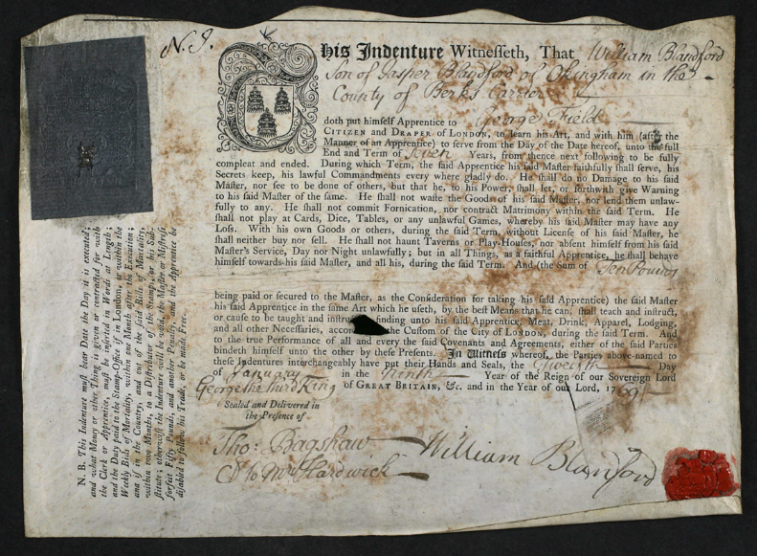 N. I.
This Indenture Witnesseth, That William Blandford
Son of Jasper Blandford of Okingham in the
County of Berks
doth put himself Apprentice to George Field
CITIZEN and DRAPER of LONDON, to learn his Art, and with him (after the
Manner of an Apprentice) to serve from the Day of the Date hereof, unto the full
End and Term of Seven Years, from thence next following to be fully
compleat and ended. During which Term, the said Apprentice his said Master faithfully shall serve, his
Secrets keep, his lawful Commandments every where gladly do. He shall do no Damage to his said
Master, nor see to be done of others, but that he, to his Power, shall let, or forthwith give Warning
to his said Master of the same. He shall not waste the Goods of his said Master, nor lend them unlaw-
fully to any. He shall not commit Fornication, nor contract Matrimony within the said Term. He
shall not play at Cards, Dice, Tables, or any unlawful Games, whereby his said Master may have any
Loss. With his own Goods or others, during the said Term, without License of his said Master, he
shall neither buy nor sell. He shall not haunt Taverns or Play-Houses, nor absent himself from his said
Master's Service, Day nor Night unlawfully; but in all Things, as a faithful Apprentice, he shall behave
himself towards his said Master, and all his, during the said Term. And (the Sum of Ten Pounds
being paid or secured to the Master, as the Consideration for taking his said Apprentice) the said Master
his said Apprentice in the same Art which he useth, by the best Means that he can, shall teach and instruct,
or cause to be taught and instru finding unto his said Apprentice, Meat, Drink, Apparel, Lodging,
and all other Necessaries, accor Custom of the City of LONDON, during the said Term. And
to the true Performance of all and every the said Covenants and Agreements, either of the said Parties
bindeth himself unto the other by these Presents. In Witness whereof, the Parties above-named to
these Indentures interchangeably have put their Hands and Seals, the Twelfth Day
of January in the Ninth Year of the Reign of our Sovereign Lord
George the Third King of GREAT BRITAIN, &c. and in the Year of our Lord, 1769
Sealed and Delivered in
the Presence of
Tho: Bagshaw
Cl: to Mr Hardwick
William Blanford
N. B. This Indenture must bear Date the Day it is executed;
and what Money or other Thing is given or contracted for with
the Clerk or Apprentice, must be inserted in Words at Length;
and the Duty paid to the Stamp-Office if in London, or within the
Weekly Bills of Mortality, within one Month after the Execution;
and if in the Country, and out of the said Bills of Mortality,
within two Months, to a Distributor of the Stamps, or his Sub-
stitute; otherwise the Indenture will be void, the Master or Mistress
forfeit Fifty Pounds, and another Penalty, and the Apprentice be
disabled to follow his Trade, or be made Free.